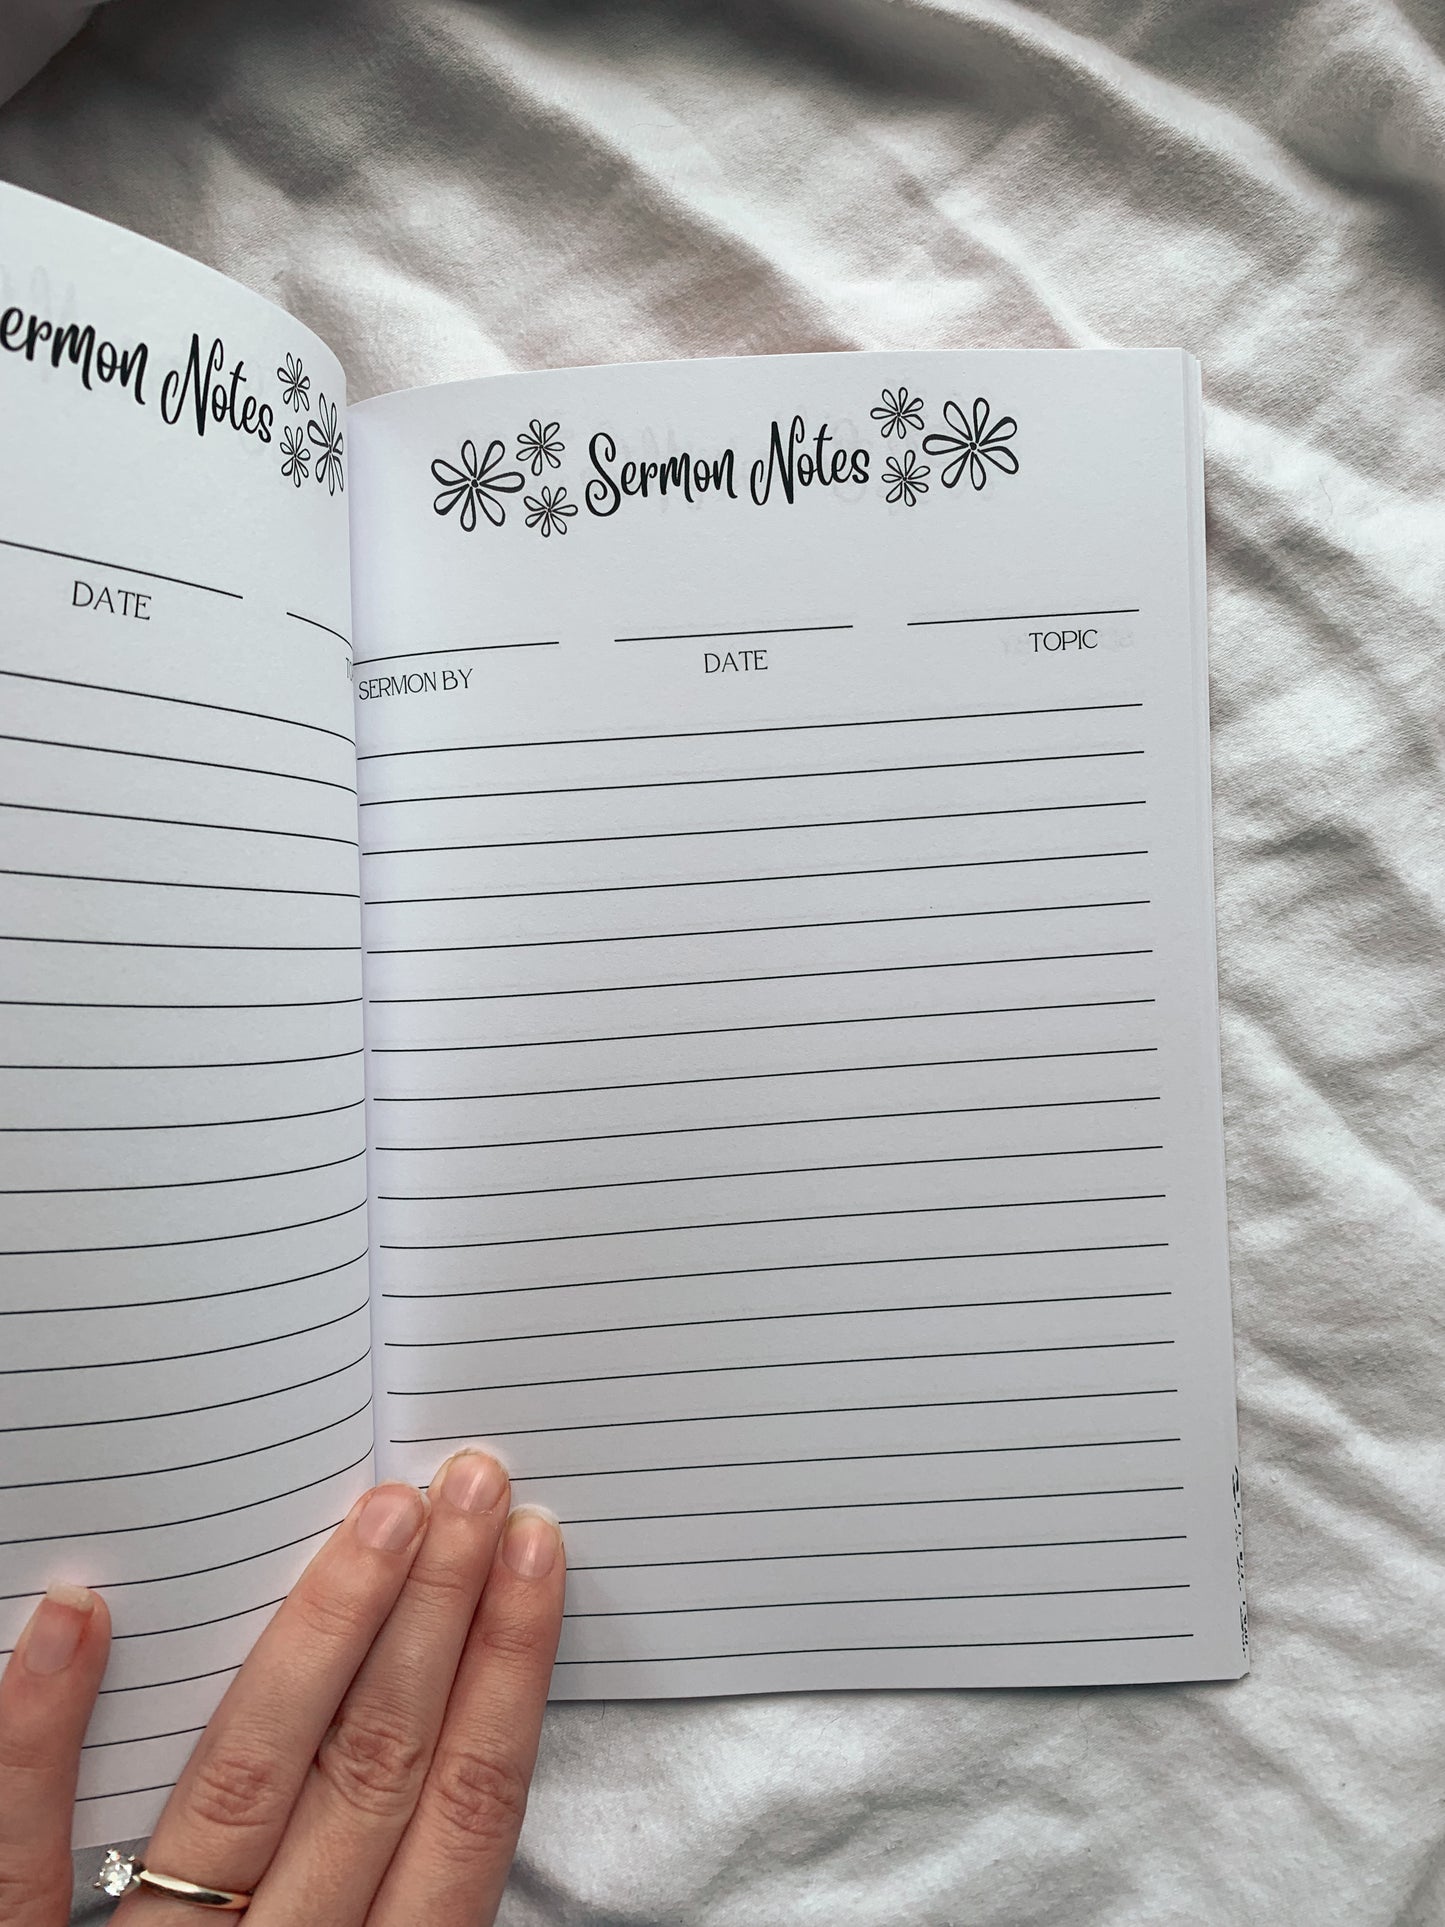 ermon Notes
DATE
Sermon Notes
SERMON BY DATE TOPIC